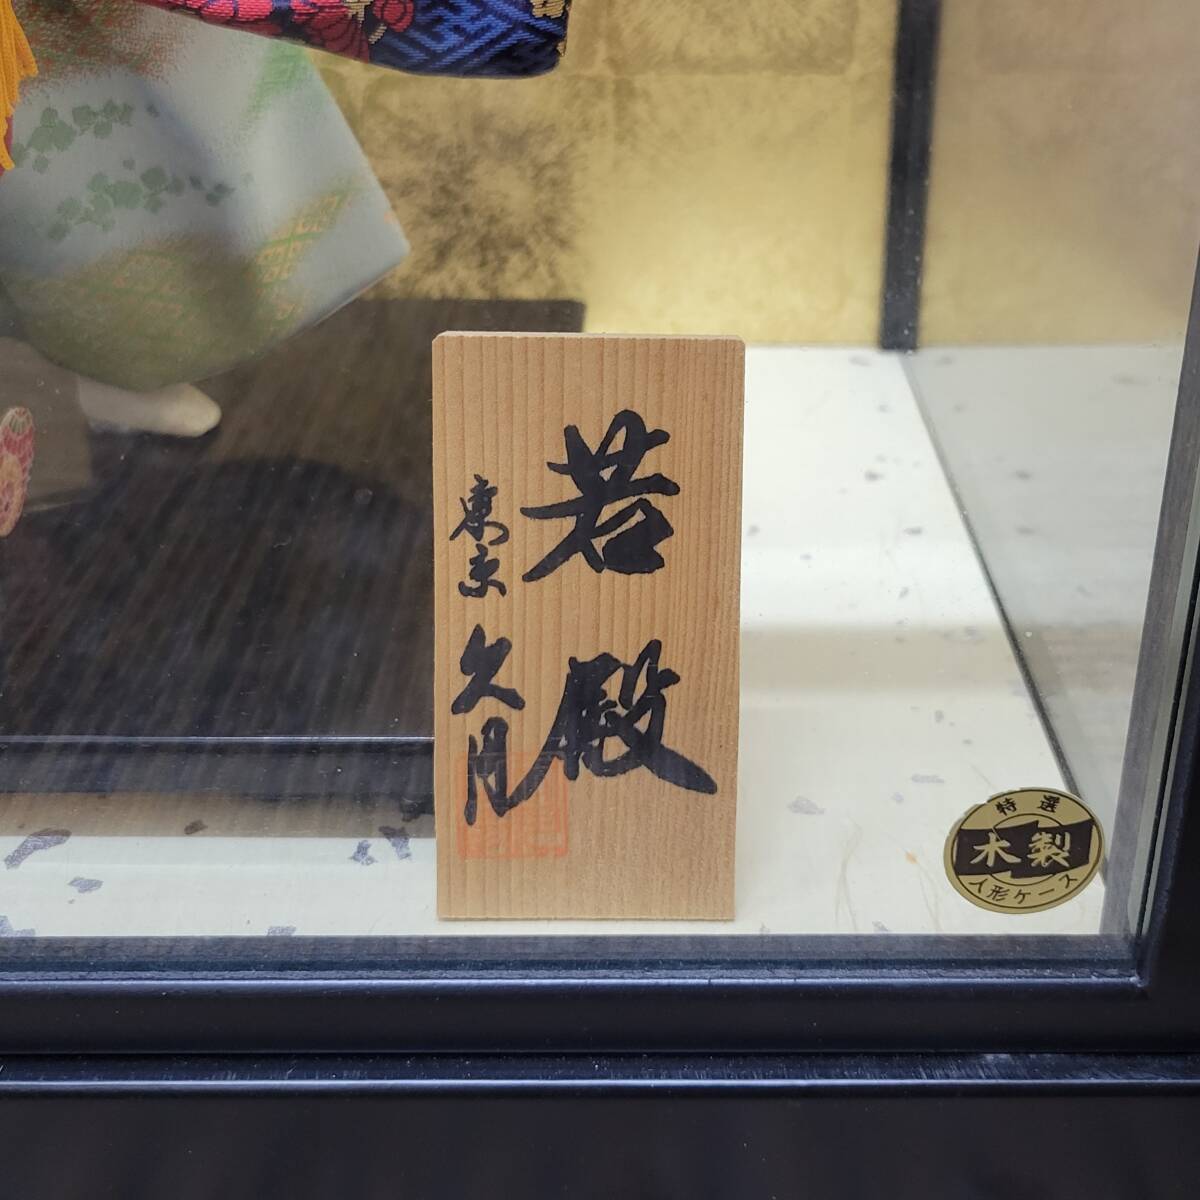 若殿
東京 久月
特選
木製
人形ケース